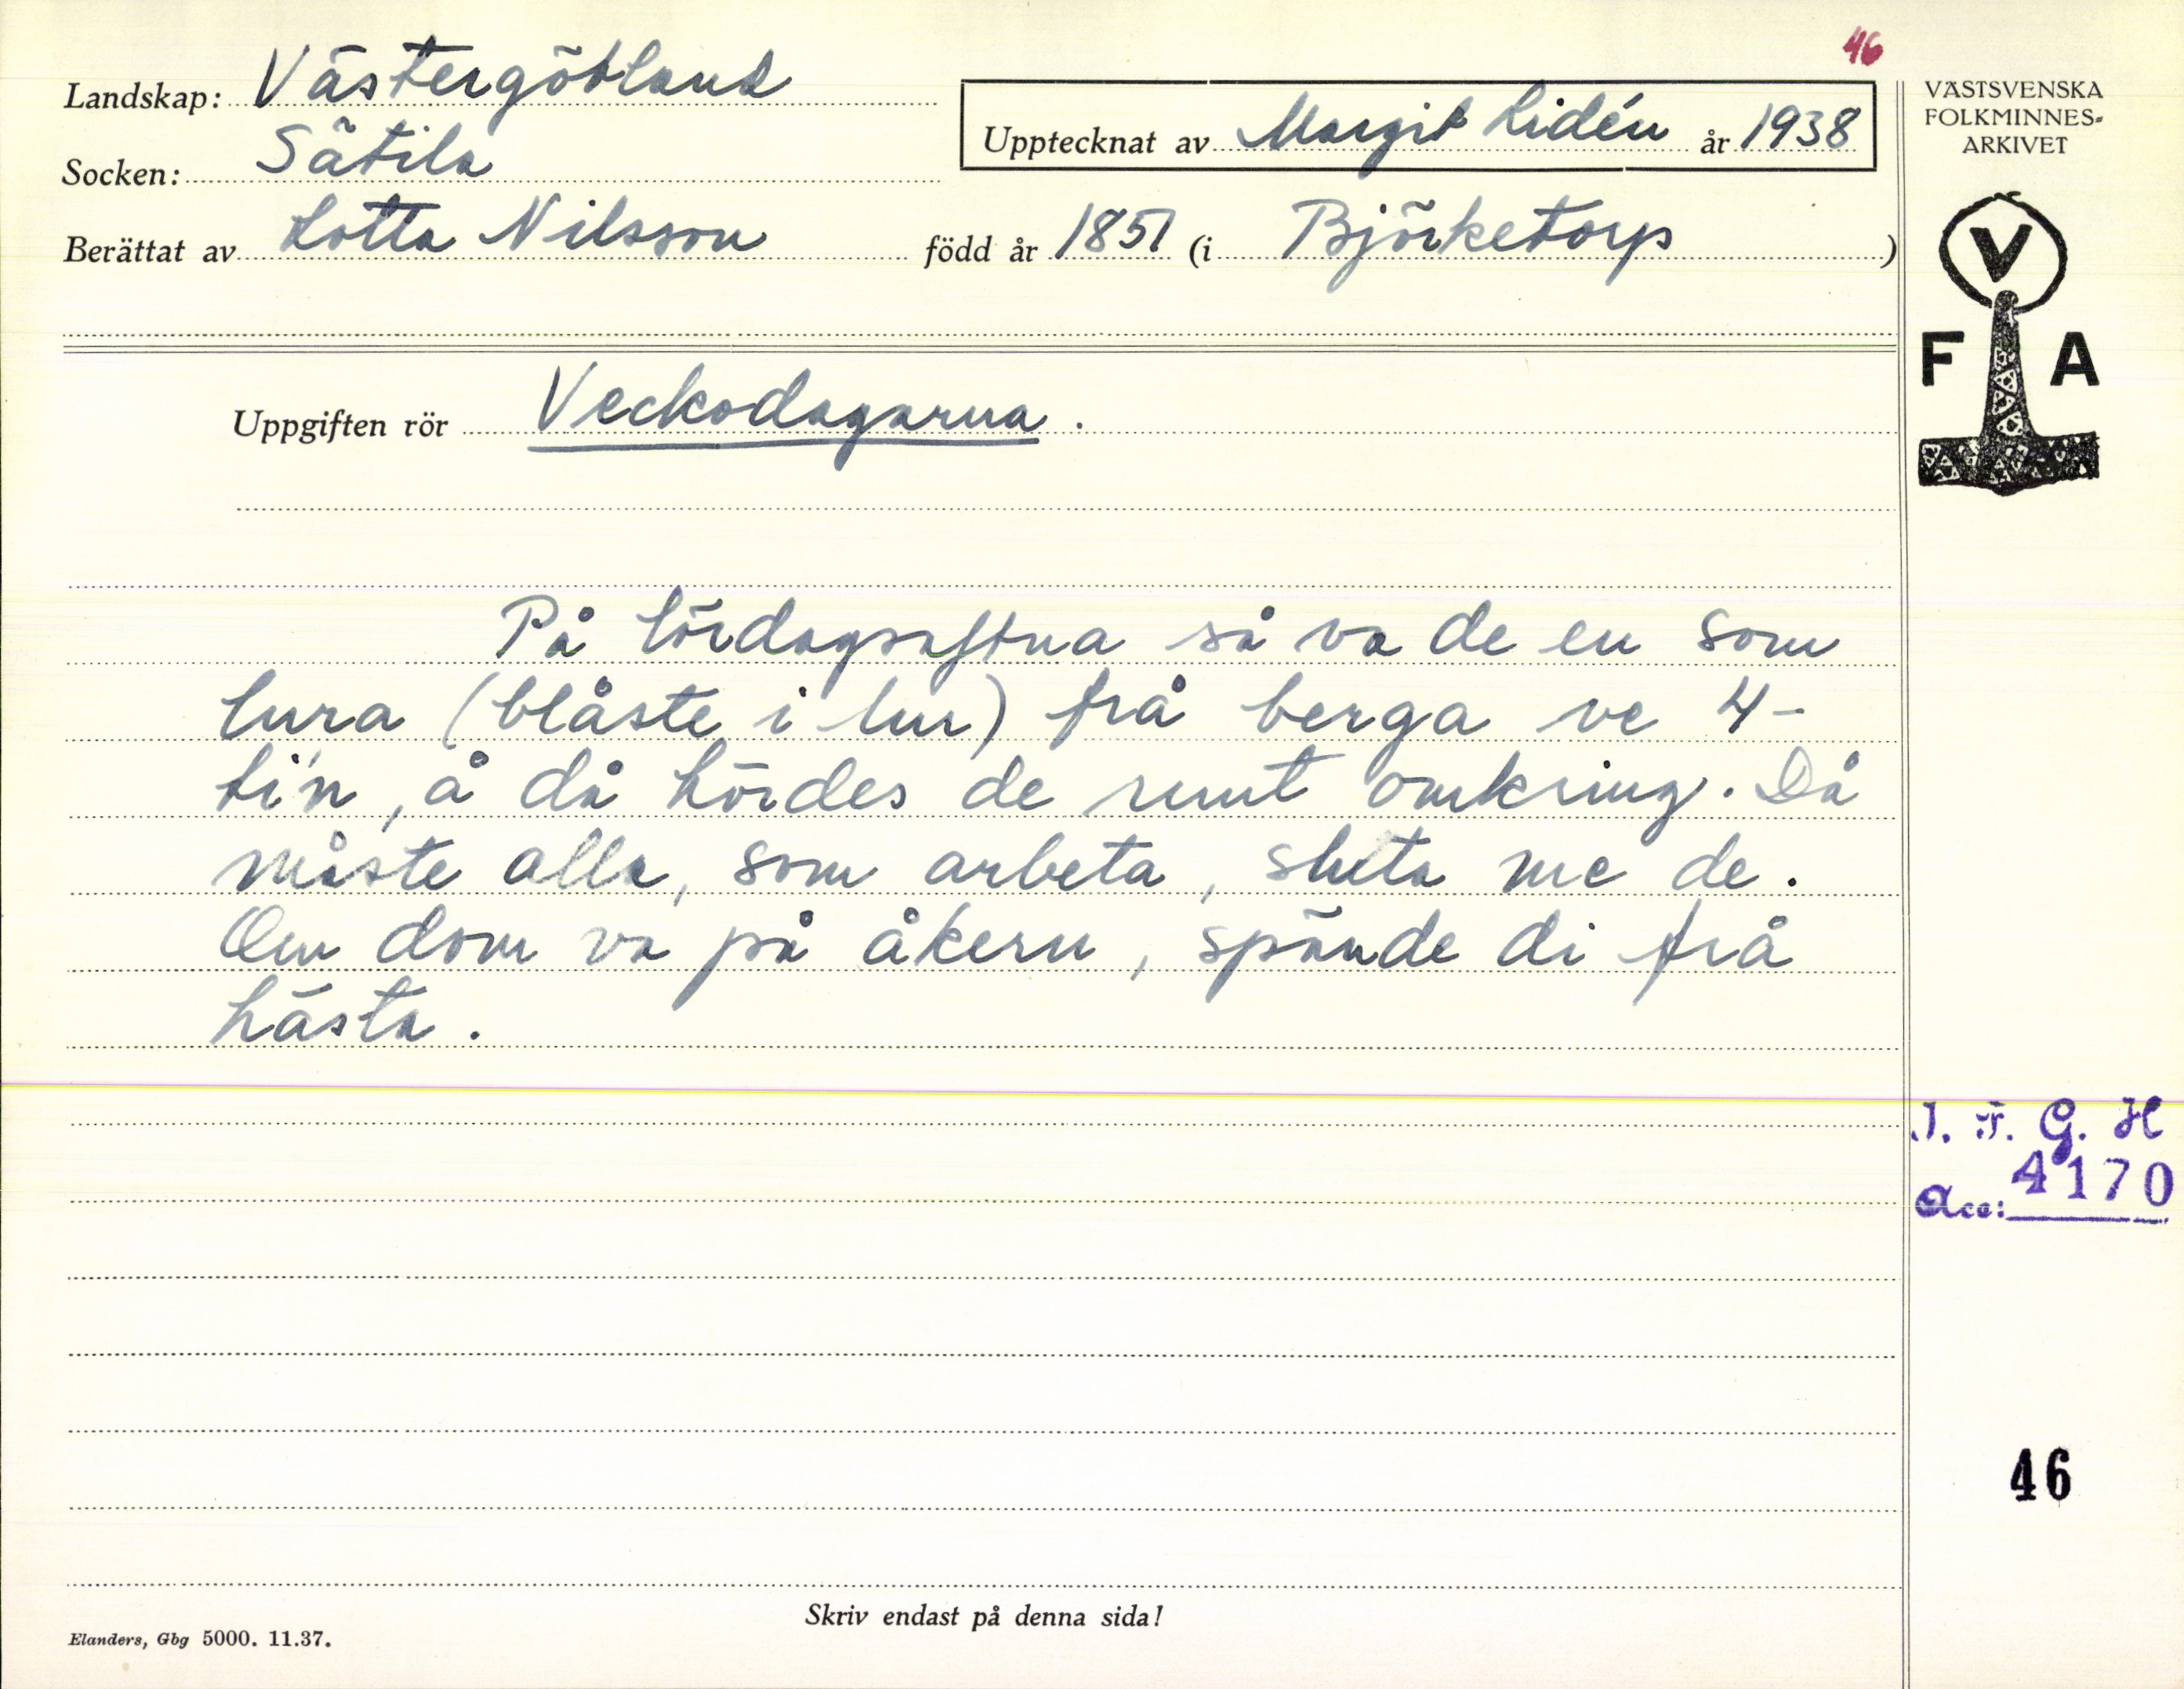 46
Landskap: Västergötland
Socken: Sätila
Upptecknat av Margit Lidén år 1938
Berättat av Lotta Nilsson född år 1851 (i Björketorp)
VÄSTSVENSKA
FOLKMINNES-
ARKIVET
V
F A
Uppgiften rör Veckodagarna.
På lördagsaftna så va de en som
lura (blåste i lur) frå berga ve 4-
ti'n, å då hördes de runt omkring. Då
måste alla, som arbeta, sluta me de.
Om dom va på åkern, spände di frå
hästa.
I. F. G. H
Acc: 4170
46
Skriv endast på denna sida!
Elanders, Gbg 5000. 11.37.